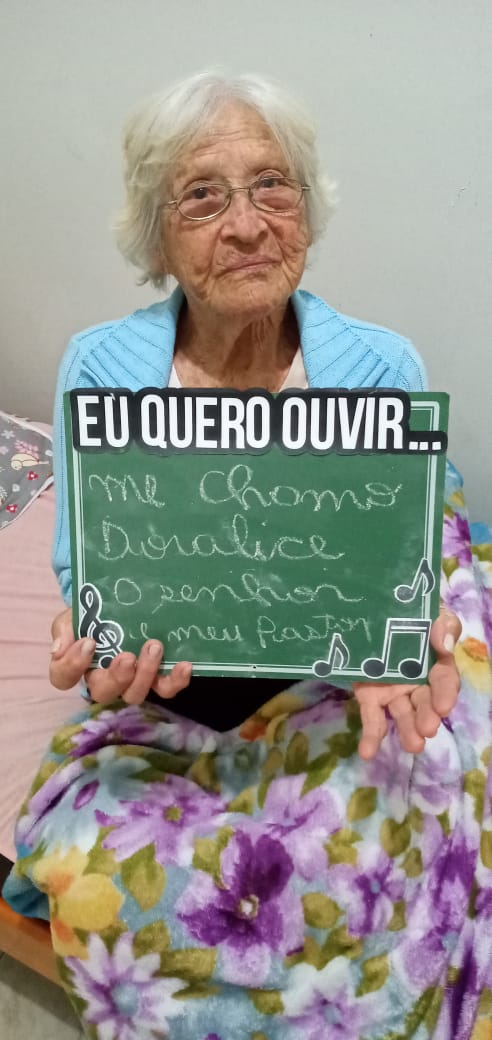 EU QUERO OUVIR...
me chamo
Doralice
O senhor
é meu Pastor